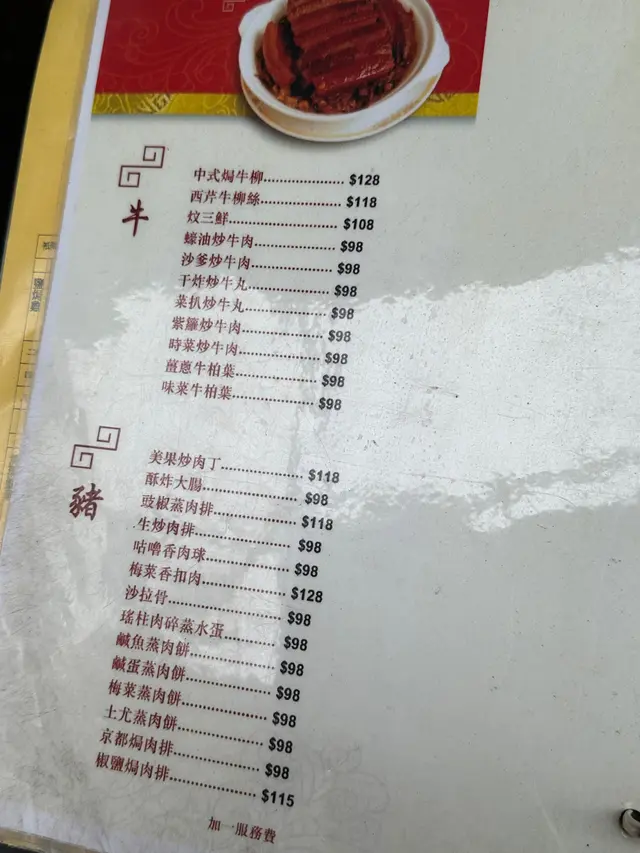 牛
中式焗牛柳.................... $128
西芹牛柳絲.................... $118
炆三鮮........................... $108
蠔油炒牛肉.................... $98
沙爹炒牛肉.................... $98
干炸炒牛丸.................... $98
菜扒炒牛丸.................... $98
紫籮炒牛肉.................... $98
時菜炒牛肉.................... $98
薑蔥牛柏葉.................... $98
味菜牛柏葉.................... $98
豬
美果炒肉丁.................... $118
酥炸大腸........................ $98
豉椒蒸肉排.................... $118
生炒肉排........................ $98
咕嚕香肉球.................... $98
梅菜香扣肉.................... $128
沙拉骨........................... $98
瑤柱肉碎蒸水蛋............. $98
鹹魚蒸肉餅.................... $98
鹹蛋蒸肉餅.................... $98
梅菜蒸肉餅.................... $98
土尤蒸肉餅.................... $98
京都焗肉排.................... $98
椒鹽焗肉排.................... $115
加一服務費